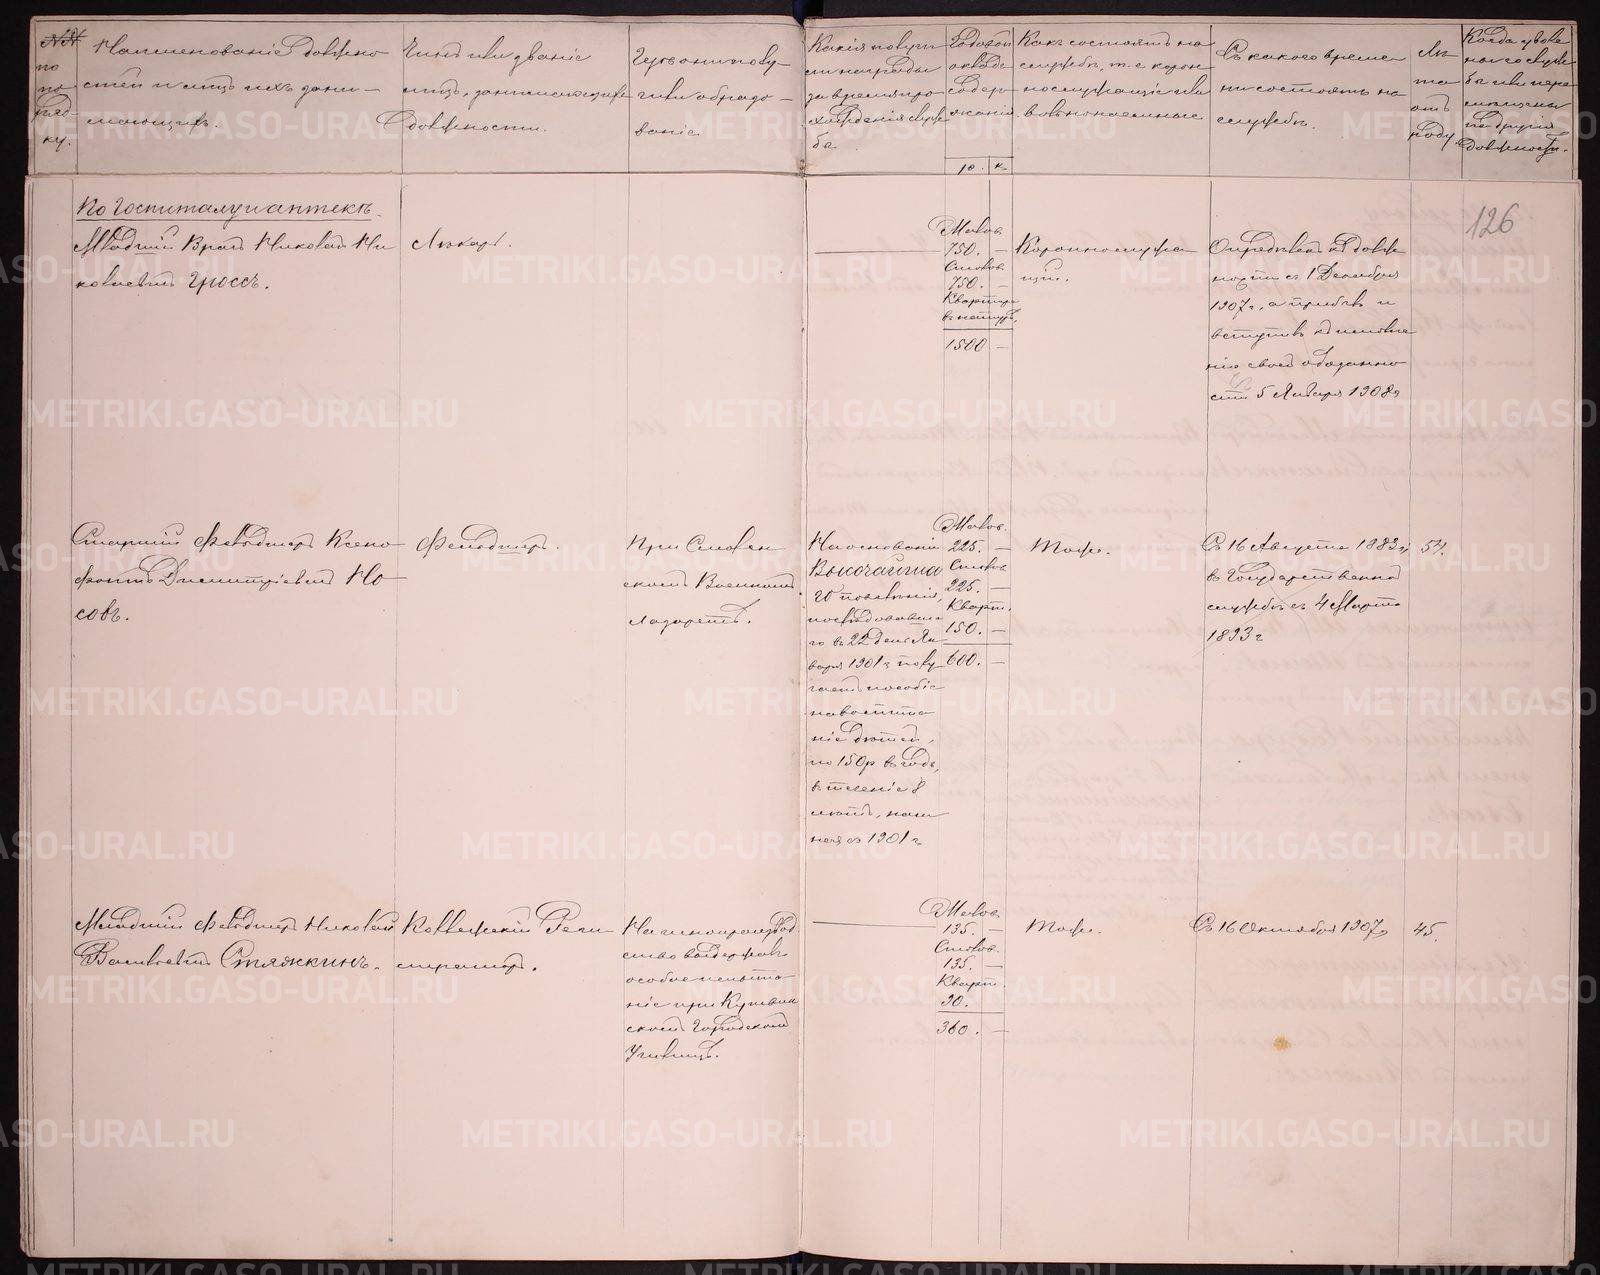 NN
по
по
ряд-
ку.
Наименованіе должно-
стей и лицъ ихъ зани-
мающихъ.
Чинъ или званіе
лицъ, занимающихъ
должности.
Гдѣ они полу-
чили образо-
ваніе
Какія получи
ли награды
за время про-
хожденія служ
бы
Годовой
окладъ
содер-
жанія.
р. к
Какъ состоятъ на
службѣ, т.е. корон
но служащіе или
вольнонаемные
Съ какого време-
ни состоятъ на
службѣ.
Лѣ
та
отъ
роду
Когда уволе
ны со служ
бы или пере
мѣщены
на другія
должности.
126
По Госпиталу и аптекѣ.
Младшій Врачъ Николай Ни
колаевичъ Гроссъ.
Лѣкарь.
Жалов.
750. —
Столов.
750. —
Квартира
въ натурѣ.
1500 —
Коронно служа
щій.
Опредѣленъ къ долж
ности съ 1 Декабря
1907 г., а прибылъ и
вступилъ къ исполне
нію своей обязанно
сти 5 Января 1908 г
Старшій Фельдшеръ Ксено-
фонтъ Дмитріевичъ Но-
совъ.
Фельдшеръ.
При Смолен
скомъ Военномъ
лазаретѣ.
На основаніи
Высочайша
го повелѣнія,
послѣдовавша
го въ 22 день Ян
варя 1901 г. полу
чаетъ пособіе
на воспита
ніе дѣтей,
по 150 р въ годъ,
въ теченіе 8
лѣтъ, начи
ная съ 1901 г.
Жалов.
225. —
Столов
225. —
Кварт.
150. —
600. —
Тоже.
Съ 16 Августа 1883 г,
въ Государственной
службѣ съ 4 Марта
1893 г
54.
Младшій Фельдшеръ Николай
Васильевичъ Стяжкинъ.
Коллежскій Реги
страторъ.
На чинопроизвод
ство выдержалъ
особое испыта
ніе при Кушвин
скомъ Городскомъ
Училищѣ.
Жалов.
135. —
Столов.
135. —
Кварт.
90. —
360. —
Тоже.
Съ 16 Октября 1907 г
45.
METRIKI.GASO-URAL.RU